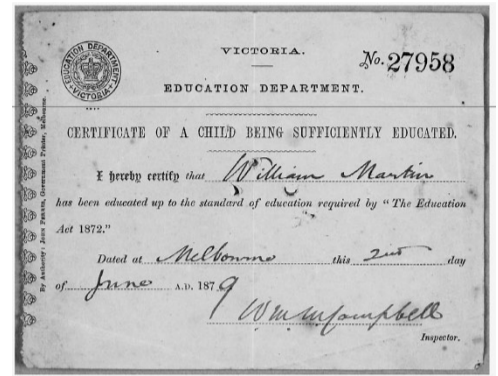 VICTORIA.
No. 27958
EDUCATION DEPARTMENT
VICTORIA
EDUCATION DEPARTMENT.
CERTIFICATE OF A CHILD BEING SUFFICIENTLY EDUCATED.
I hereby certify that William Martin
has been educated up to the standard of education required by "The Education
Act 1872."
Dated at Melbourne this 2nd day
of June A.D. 1879
Wm. M. Campbell
Inspector.
By Authority: John Ferres, Government Printer, Melbourne.